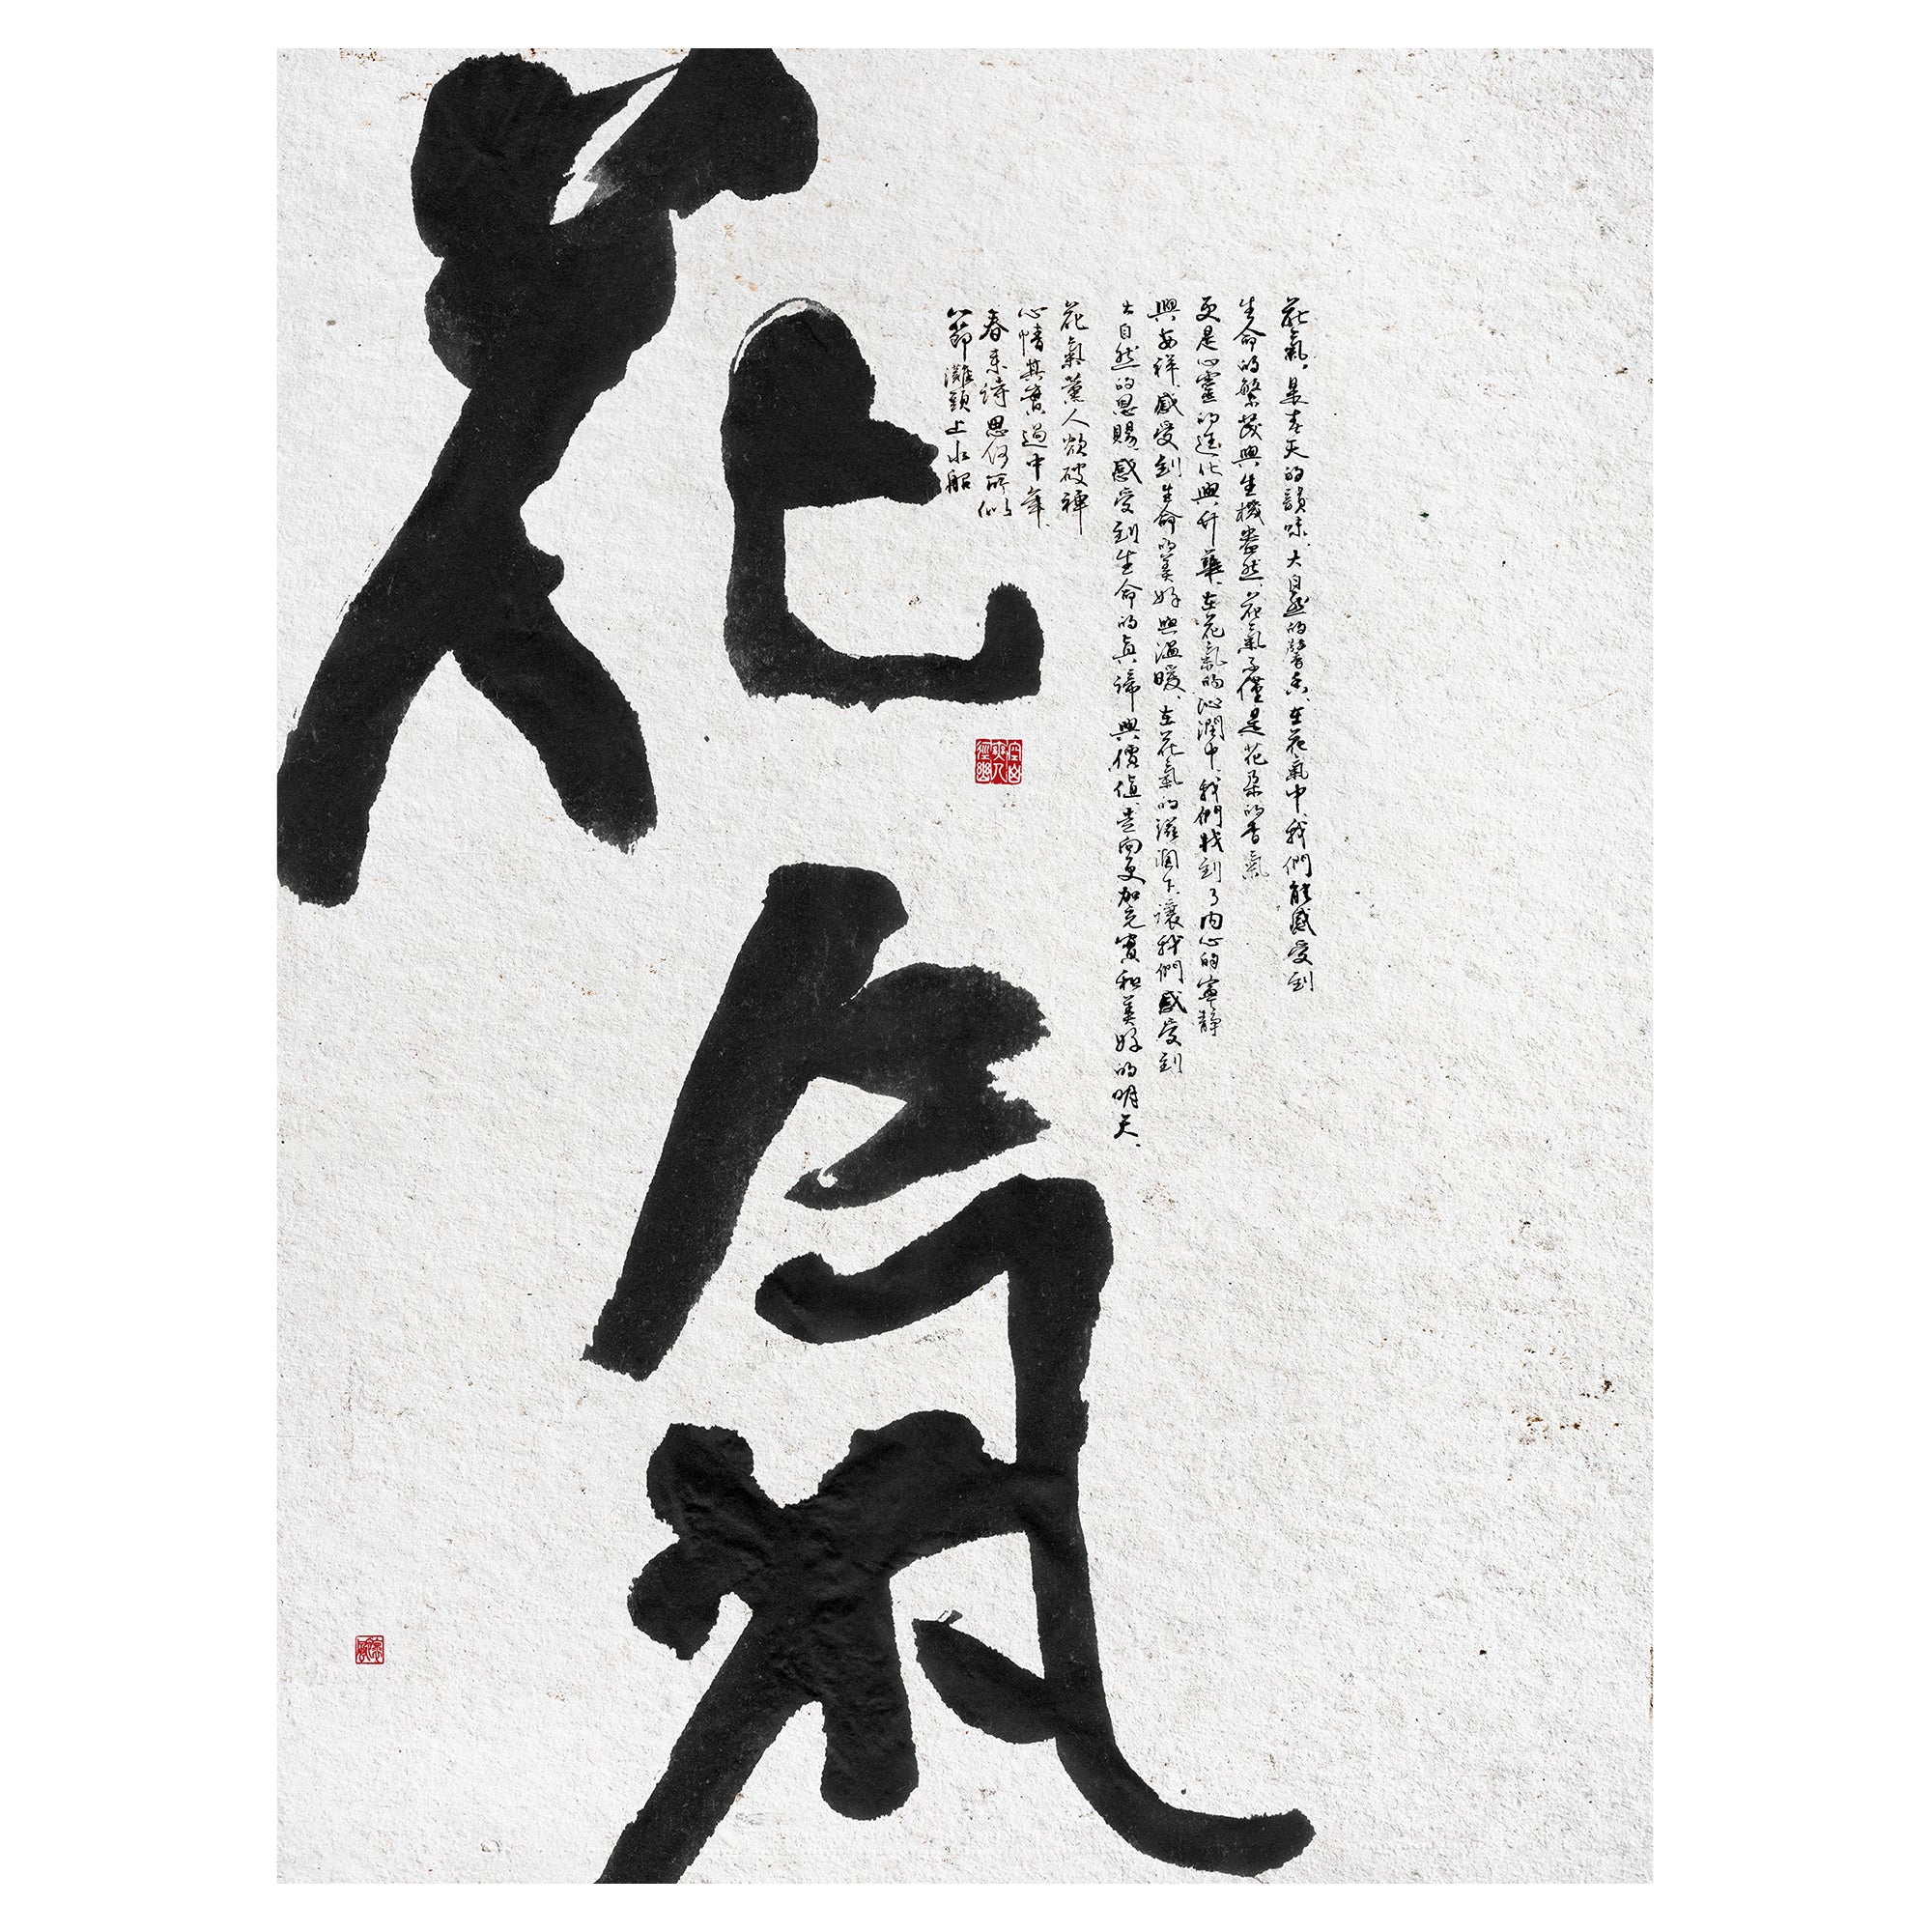 花氣
花氣，是春天的韻味、大自然的馨香、在花氣中、我們能感受到
生命的繁茂與生機盎然、花氣不僅是花朵的香氣
更是心靈的進化與升華、在花氣的沁潤中、我們找到了內心的寧靜
與安祥、感受到生命的美好與溫暖、在花氣的滋潤下、讓我們感受到
大自然的恩賜、感受到生命的真諦與價值、走向更加充實和美好的明天、
花氣薰人欲破禪
心情其實過中年、
春來詩思何所似
八節灘頭上水船